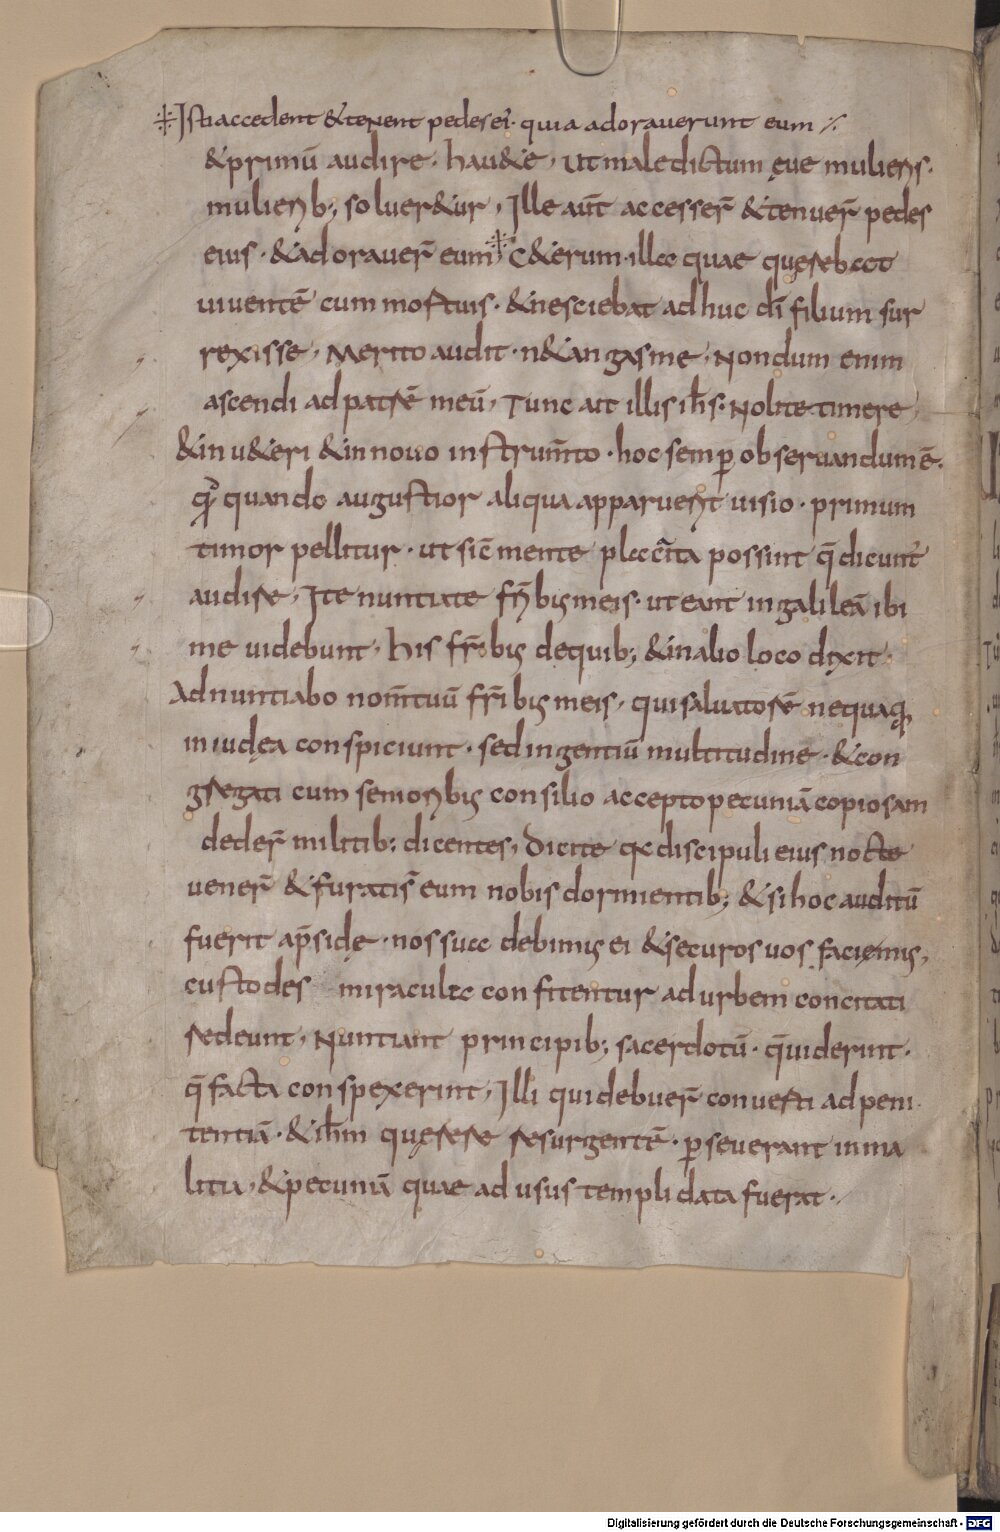 ※ Isti accedent & tenent pedes ei'. quia adoraverunt eum ⁒
& primū audire. hau&e, ut maledictum ęue mulieris.
mulierib; soluer&ur, Ille aūt accesser̄ & tenuer̄ pedes
eius. & adorauer̄ eum ※ C&erum. illa quae querebat
uiuentē cum mortuis. & nesciebat adhuc dī filium sur
rexisse, Merito audit. n& angas me, Nondum enim
ascendi ad patrē meū, Tunc ait illis ih̄s. Nolite timere,
& in u&eri & in nouo instrum̄to. hoc semp̄ obseruandum ē.
qđ quando augustior aliqua apparuerit uisio. primum
timor pellitur. ut sic mente placata possint q̄ dicunt̄
audire, Ite nuntiate fr̄ibus meis. ut eant in galileā ibi
me uidebunt, his fr̄ibus de quib; & in alio loco dixit.
Adnuntiabo nom̄ tuū fr̄ibus meis, qui saluatorē nequaq̄
in iudęa conspiciunt. sed in gentiū multitudine. & con
gregati cum senioribus consilio accepto pecuniā copiosam
deder̄ militib; dicentes, Dicite qa discipuli eius nocte
uener̄ & furati s̄ eum nobis dormientib; & si hoc auditū
fuerit a p̄side. nos suadebimus ei & securos uos faciemus,
custodes miracula confitentur ad urbem concitati
redeunt, Nuntiant principib; sacerdotū. q̄ uiderint.
q̄ facta conspexerint, Illi qui debuer̄ conuerti ad peni
tentiā. & ih̄m querere resurgentē. p̄seuerant in ma
litia, & pecuniā quae ad usus templi data fuerat.
Digitalisierung gefördert durch die Deutsche Forschungsgemeinschaft - DFG